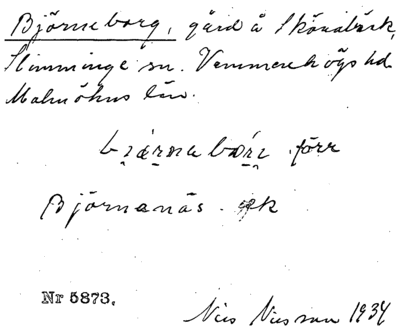 Björneborg, gård å Skönabäck,
Slimminge sn. Vemmenhögs hd.
Malmöhus län.
förr
Björnanäs.
Nr 5873.
Nils Nilsson 1934